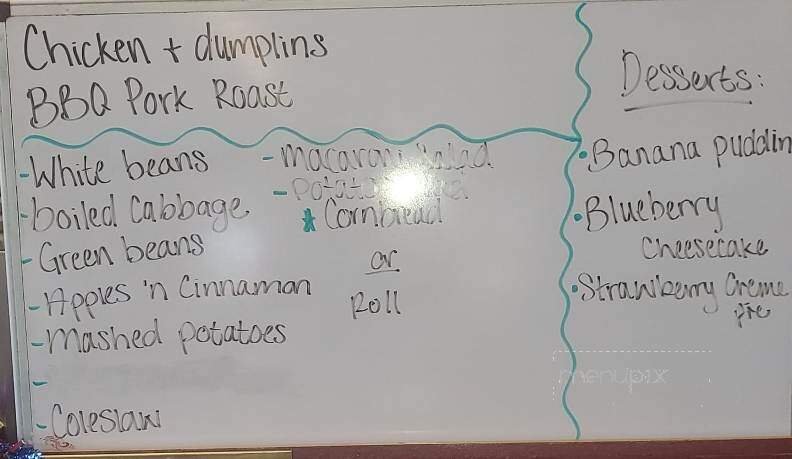 Chicken + dumplins
BBQ Pork Roast
-White beans
-boiled Cabbage
-Green beans
-Apples 'n Cinnamon
-mashed potatoes
-
-Coleslaw
-macaroni Salad
-Potato Salad
* Cornbread
or
Roll
Desserts:
•Banana puddin
•Blueberry
Cheesecake
•Strawberry Creme
pie
menupix